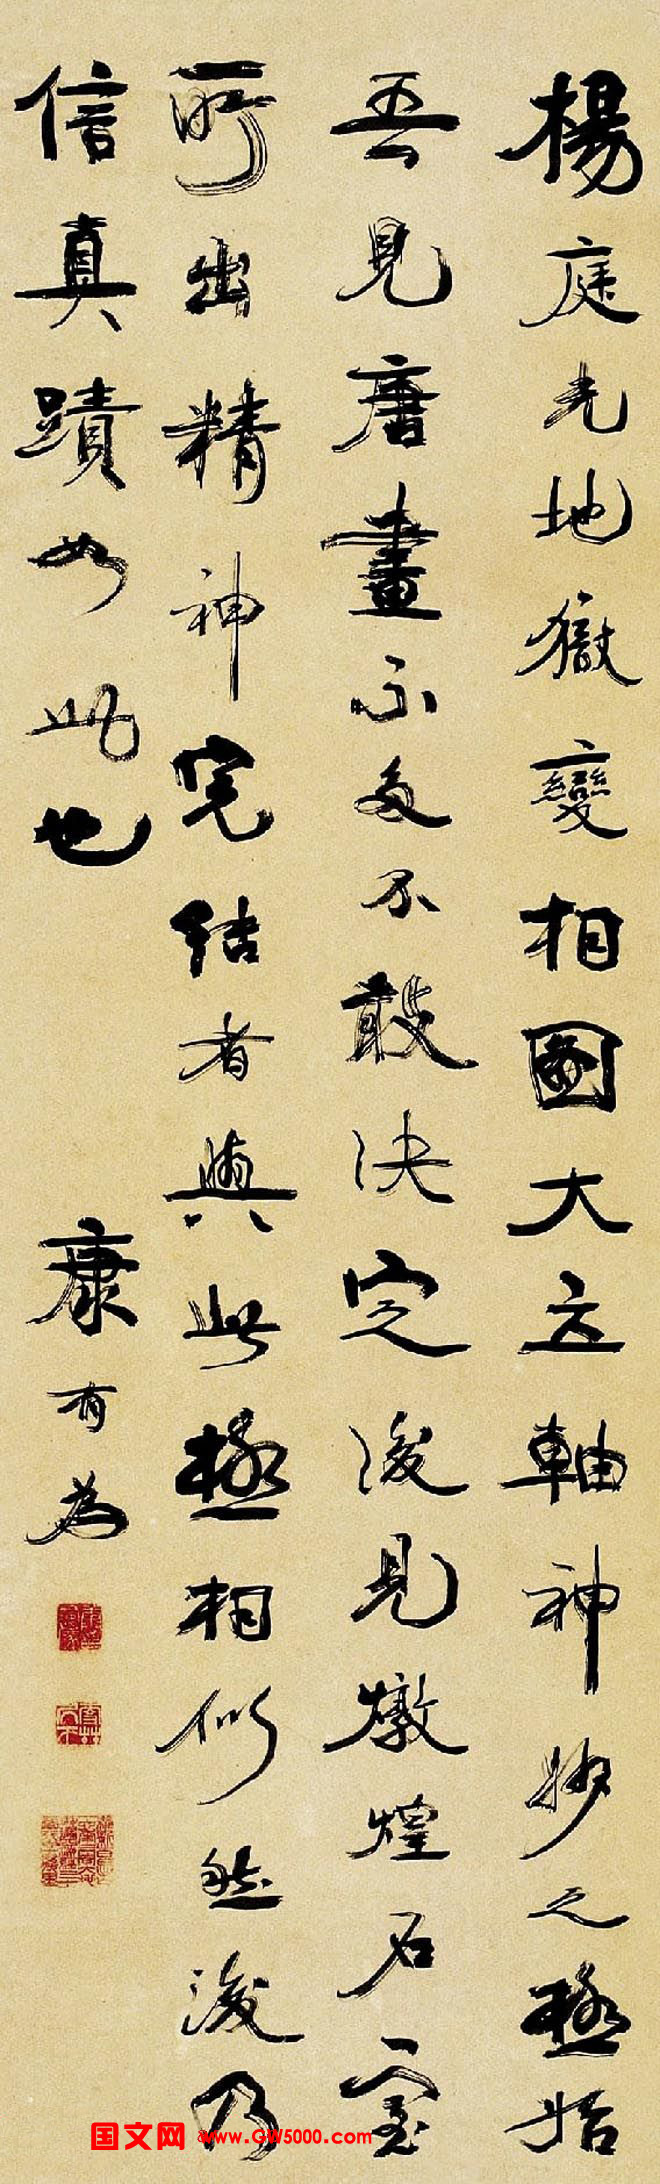 楊庭光地獄變相圖大立軸神妙之極始
吾見唐畫不多不敢決定後見燉煌石室
所出精神完結者與此極相似然後乃
信真蹟如此也
康有為
国文网 www.GW5000.com